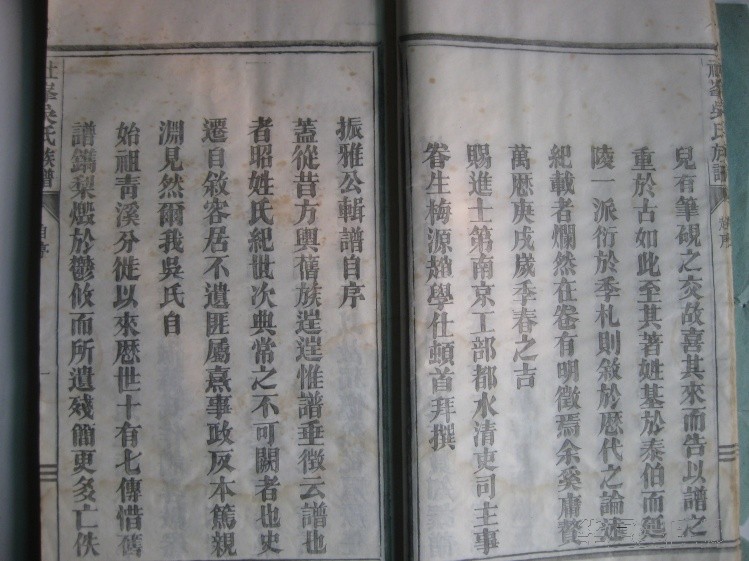 兒有筆硯之交故喜其來而告以譜之
重於古如此至其著姓基於泰伯而延
陵一派衍於季札則敘於歷代之論述
紀載者爛然在卷有明徵焉余奚庸贅
萬歷庚戌歲季春之吉
賜進士第南京工部都水清吏司主事
眷生梅源趙學仕頓首拜撰
吳氏族譜
自序
振雅公輯譜自序
蓋從昔方輿舊族遑遑惟譜垂徵云譜也
者昭姓氏紀世次典常之不可闕者也史
遷自敘客居不遺匪屬熹事政反本篤親
淵見然爾我吳氏自
始祖青溪分徙以來歷世十有七傳惜舊
譜鐫梨燬於鬱攸而所遺殘簡更多亡佚
峯吳氏族譜
自序
一